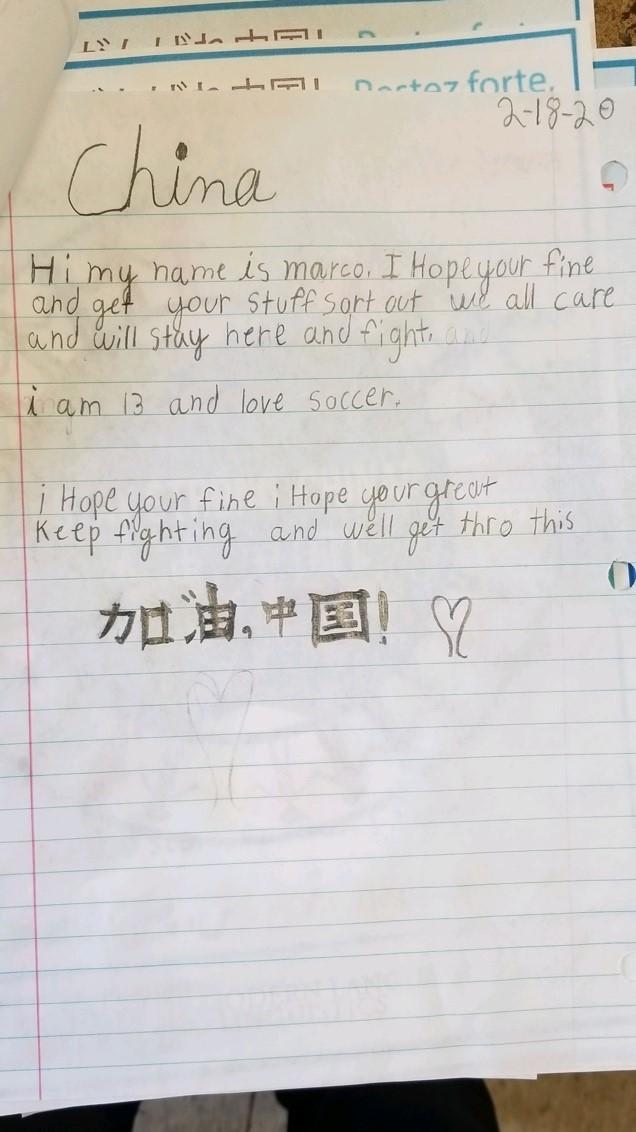 Portez forte.
2-18-20
China
Hi my name is marco. I Hope your fine
and get your stuff sort out we all care
and will stay here and fight. and
i am 13 and love soccer.
i Hope your fine i Hope your great
Keep fighting and we'll get thro this
加口油,中国!